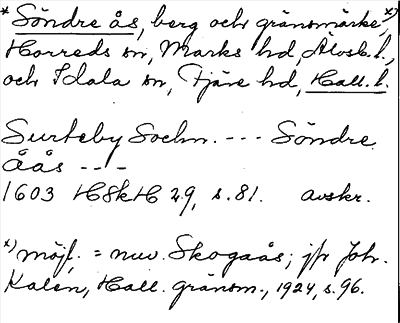 * Söndre ås, berg och gränsmärke, x)
Horreds sn, Marks hd, Älvsb. l.,
och Idala sn, Fjäre hd, Hall. l.
Surteby Sochn. --- Söndre
Åås ---
1603 HSkH 29, s. 81. avskr.
x) möjl. = nuv. Skogaås; jfr Joh.
Kalén, Hall. gränsm., 1924, s. 96.